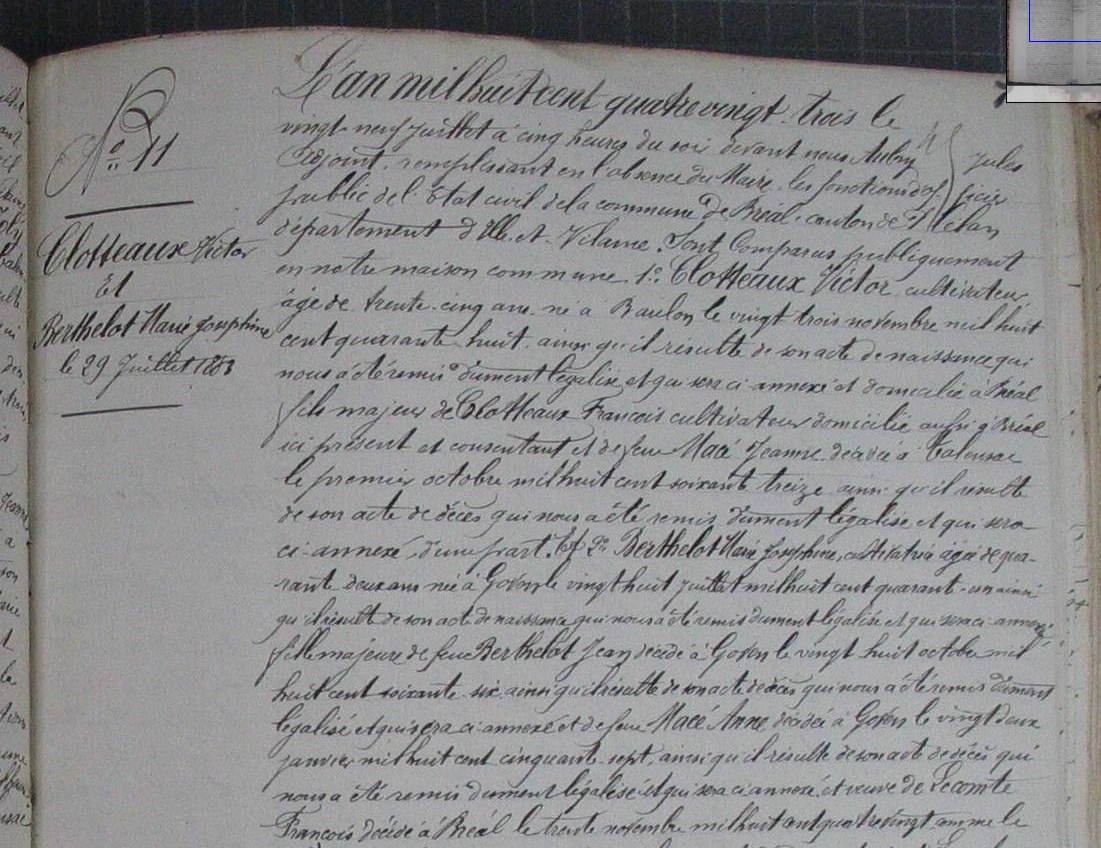 N° 11
Clotteaux Victor
Et
Berthelot Marie Josephine
le 29 Juillet 1883
L'an mil huit cent quatre vingt trois le
vingt neuf Juillet à cinq heures du soir devant nous Aubry Jules
Adjoint remplissant en l'absence du Maire les fonctions d'officier
public de l'Etat civil de la commune de Bréal canton de Plélan
département d'Ille-et-Vilaine. Sont Comparus publiquement
en notre maison commune 1°. Clotteaux Victor cultivateur,
âgé de trente-cinq ans né à Baulon le vingt trois novembre mil huit
cent quarante huit ainsi qu'il résulte de son acte de naissance qui
nous a été remis dument légalisé et qui sera ci annexé et domicilié à Bréal
fils majeur de Clotteaux François cultivateur domicilié aussi à Bréal
ici présent et consentant et de feue Macé Jeanne décédée à Talensac
le premier octobre mil huit cent soixante treize ainsi qu'il résulte
de son acte de décès qui nous a été remis dument légalisé et qui sera
ci-annexé d'une part, Et 2° Berthelot Marie Josephine, cultivatrice âgée de qua-
rante deux ans née à Goven le vingt huit juillet mil huit cent quarante-un ainsi
qu'il résulte de son acte de naissance qui nous a été remis dument légalisé et qui sera ci-annexé
fille majeure de feu Berthelot Jean décédé à Goven le vingt huit octobre mil
huit cent soixante six, ainsi qu'il résulte de son acte de décès qui nous a été remis dument
légalisé et qui sera ci-annexé et de feue Macé Anne décédée à Goven le vingt deux
janvier mil huit cent cinquante sept, ainsi qu'il résulte de son acte de décès qui
nous a été remis dument légalisé et qui sera ci annexé, et veuve de Lecomte
François décédé à Bréal le trente novembre mil huit cent quatre vingt, comme le